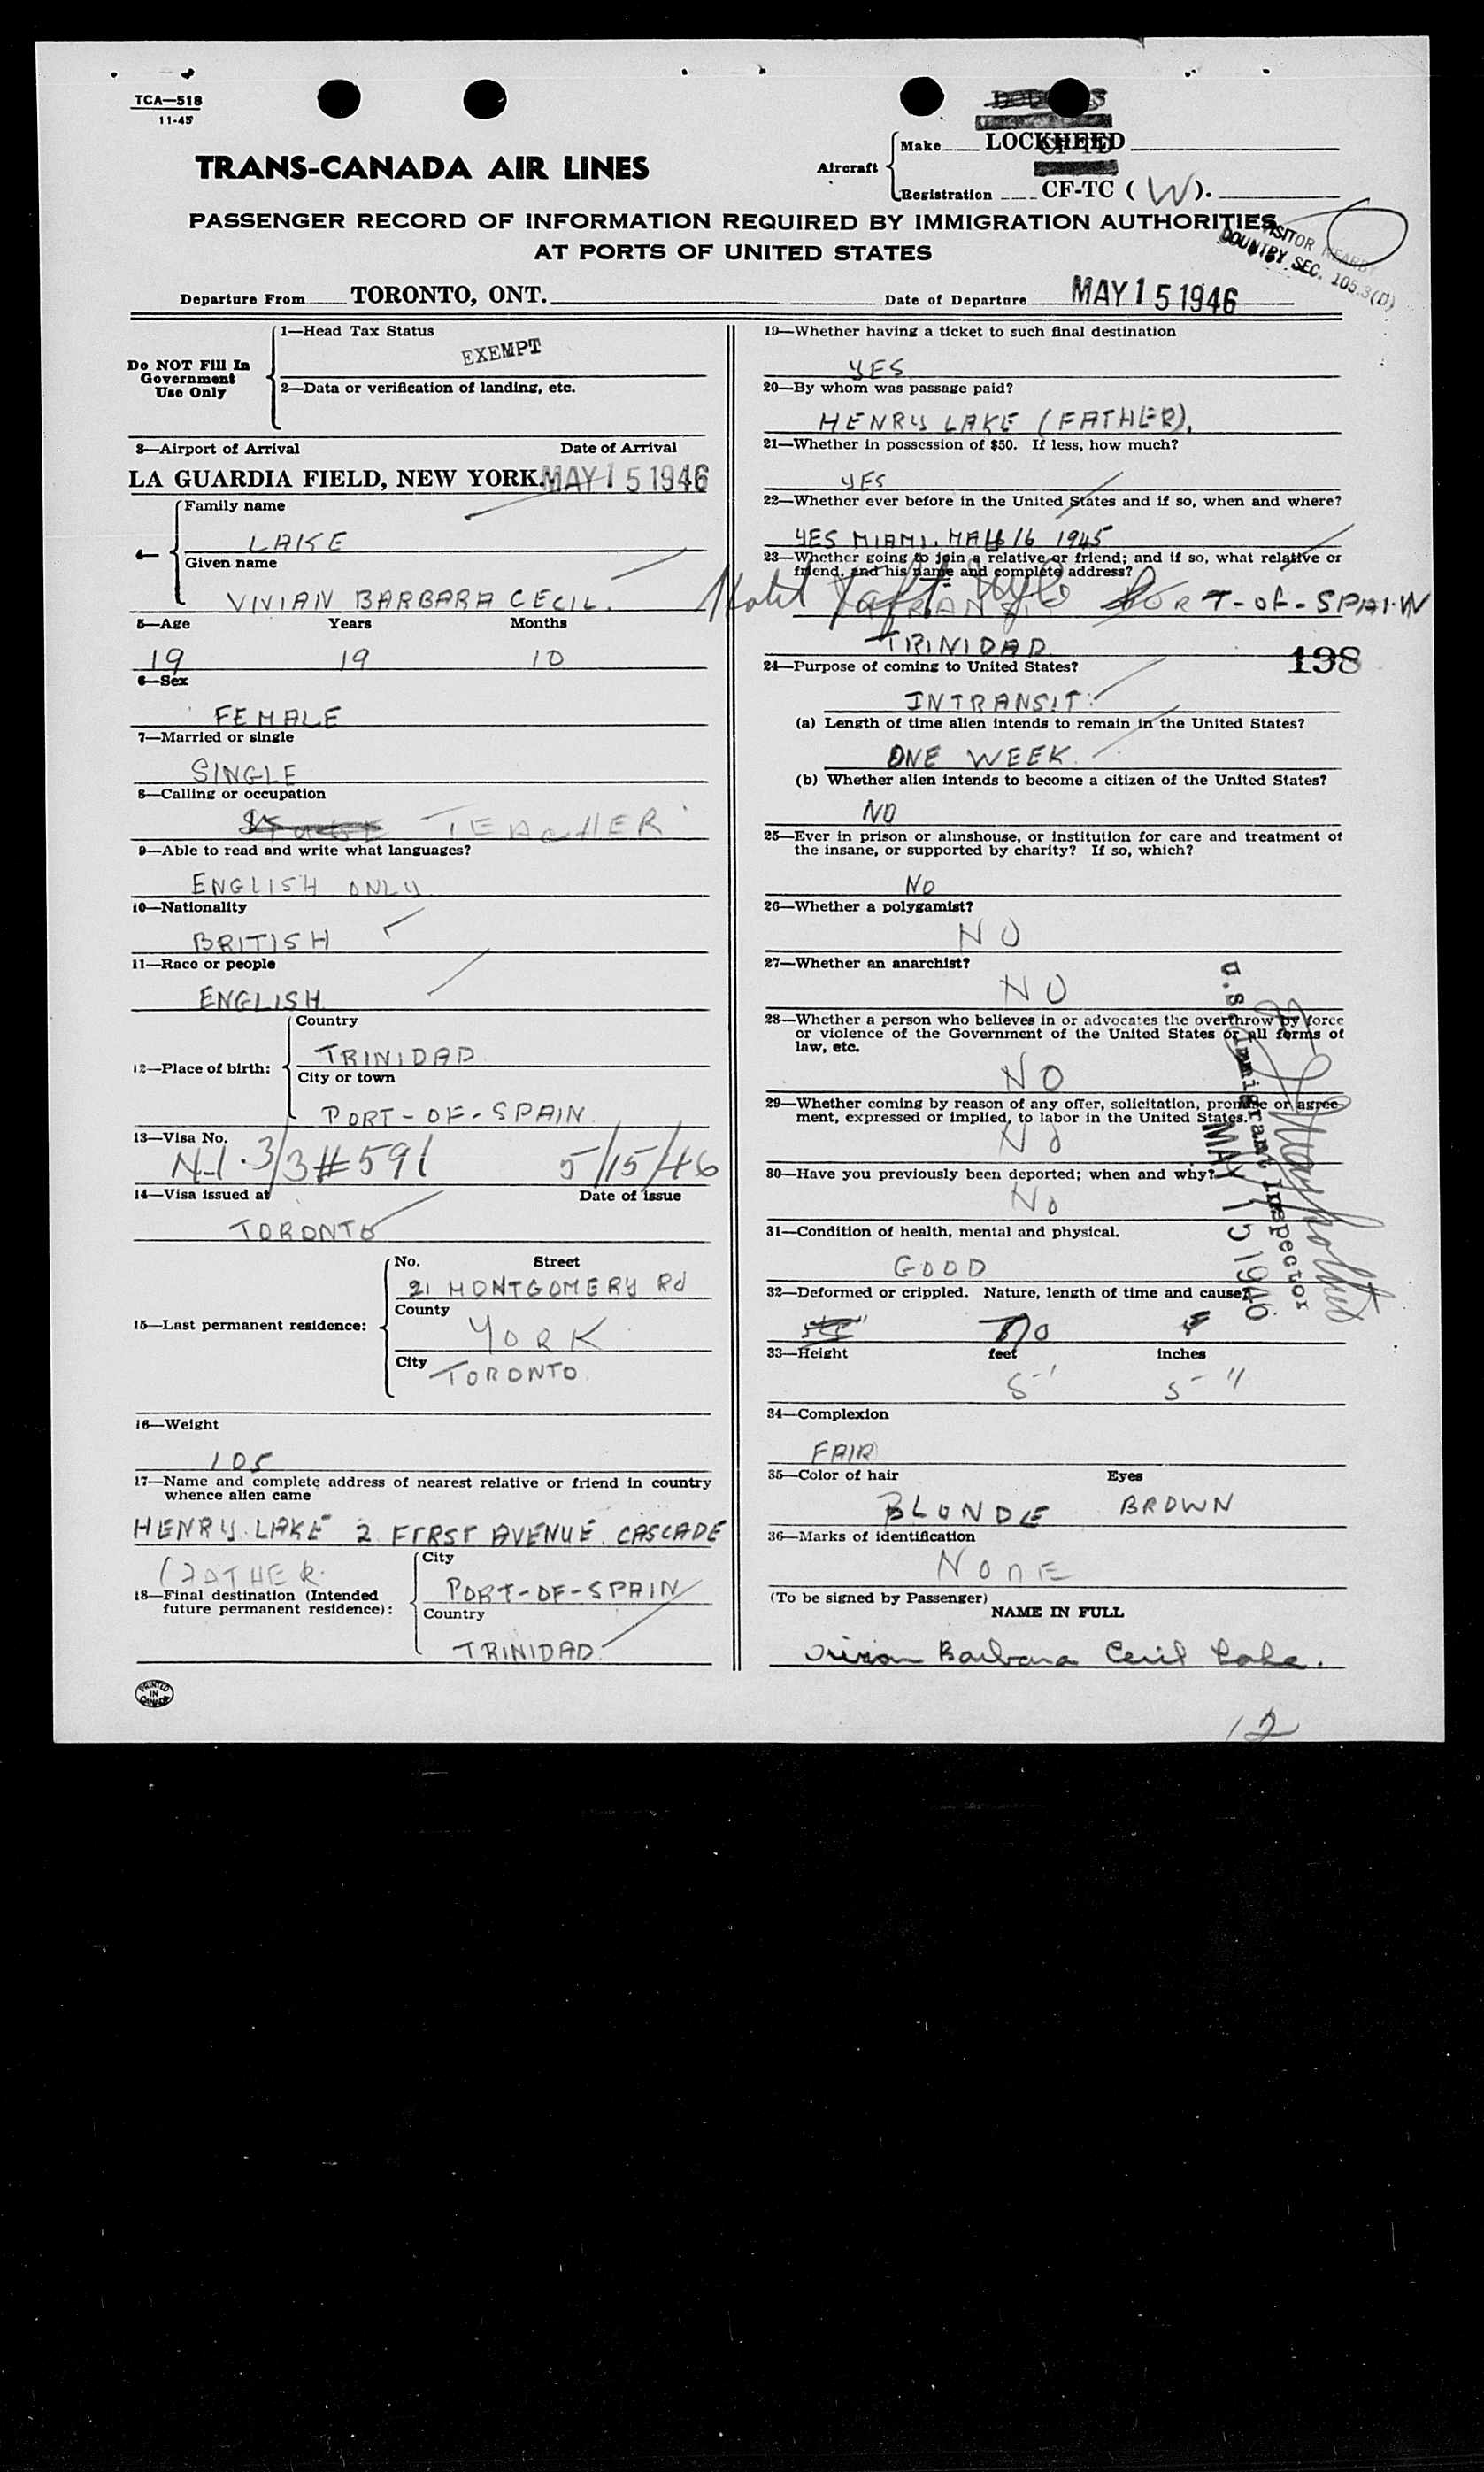 TCA—518
11-45
TRANS-CANADA AIR LINES
Aircraft
Make LOCKHEED
Registration CF-TC ( W ).
PASSENGER RECORD OF INFORMATION REQUIRED BY IMMIGRATION AUTHORITIES
AT PORTS OF UNITED STATES
VISITOR NEARBY
COUNTRY SEC. 105.3(D)
Departure From TORONTO, ONT. Date of Departure MAY 15 1946
Do NOT Fill In
Government
Use Only
1—Head Tax Status
EXEMPT
2—Data or verification of landing, etc.
3—Airport of Arrival Date of Arrival
LA GUARDIA FIELD, NEW YORK. MAY 15 1946
4—
Family name
LAKE
Given name
VIVIAN BARBARA CECIL.
5—Age Years Months
19 19 10
6—Sex
FEMALE
7—Married or single
SINGLE
8—Calling or occupation
TEACHER
9—Able to read and write what languages?
ENGLISH ONLY
10—Nationality
BRITISH
11—Race or people
ENGLISH
12—Place of birth:
Country
TRINIDAD
City or town
PORT-OF-SPAIN
13—Visa No.
N-1. 3/3#591 5/15/46
14—Visa issued at Date of issue
TORONTO
15—Last permanent residence:
No. Street
21 MONTGOMERY Rd
County
YORK
City TORONTO
16—Weight
105
17—Name and complete address of nearest relative or friend in country
whence alien came
HENRY LAKE 2 FIRST AVENUE. CASCADE
(FATHER.
18—Final destination (Intended
future permanent residence):
City
PORT-OF-SPAIN
Country
TRINIDAD
PRINTED
IN
CANADA
19—Whether having a ticket to such final destination
YES
20—By whom was passage paid?
HENRY LAKE (FATHER).
21—Whether in possession of $50. If less, how much?
YES
22—Whether ever before in the United States and if so, when and where?
YES MIAMI. MAY 16 1945
23—Whether going to join a relative or friend; and if so, what relative or
friend, and his name and complete address?
Hotel Taft NYC PORT-OF-SPAIN
TRINIDAD
198
24—Purpose of coming to United States?
INTRANSIT.
(a) Length of time alien intends to remain in the United States?
ONE WEEK
(b) Whether alien intends to become a citizen of the United States?
NO
25—Ever in prison or almshouse, or institution for care and treatment of
the insane, or supported by charity? If so, which?
NO
26—Whether a polygamist?
NO
27—Whether an anarchist?
NO
28—Whether a person who believes in or advocates the overthrow by force
or violence of the Government of the United States or all forms of
law, etc.
NO
29—Whether coming by reason of any offer, solicitation, promise or agree-
ment, expressed or implied, to labor in the United States.
NO
30—Have you previously been deported; when and why?
NO
U.S. Immigrant Inspector
MAY 15 1946
31—Condition of health, mental and physical.
GOOD
32—Deformed or crippled. Nature, length of time and cause?
No
33—Height feet inches
5' 5"
34—Complexion
FAIR
35—Color of hair Eyes
BLONDE BROWN
36—Marks of identification
NONE
(To be signed by Passenger)
NAME IN FULL
Vivian Barbara Cecil Lake.
12